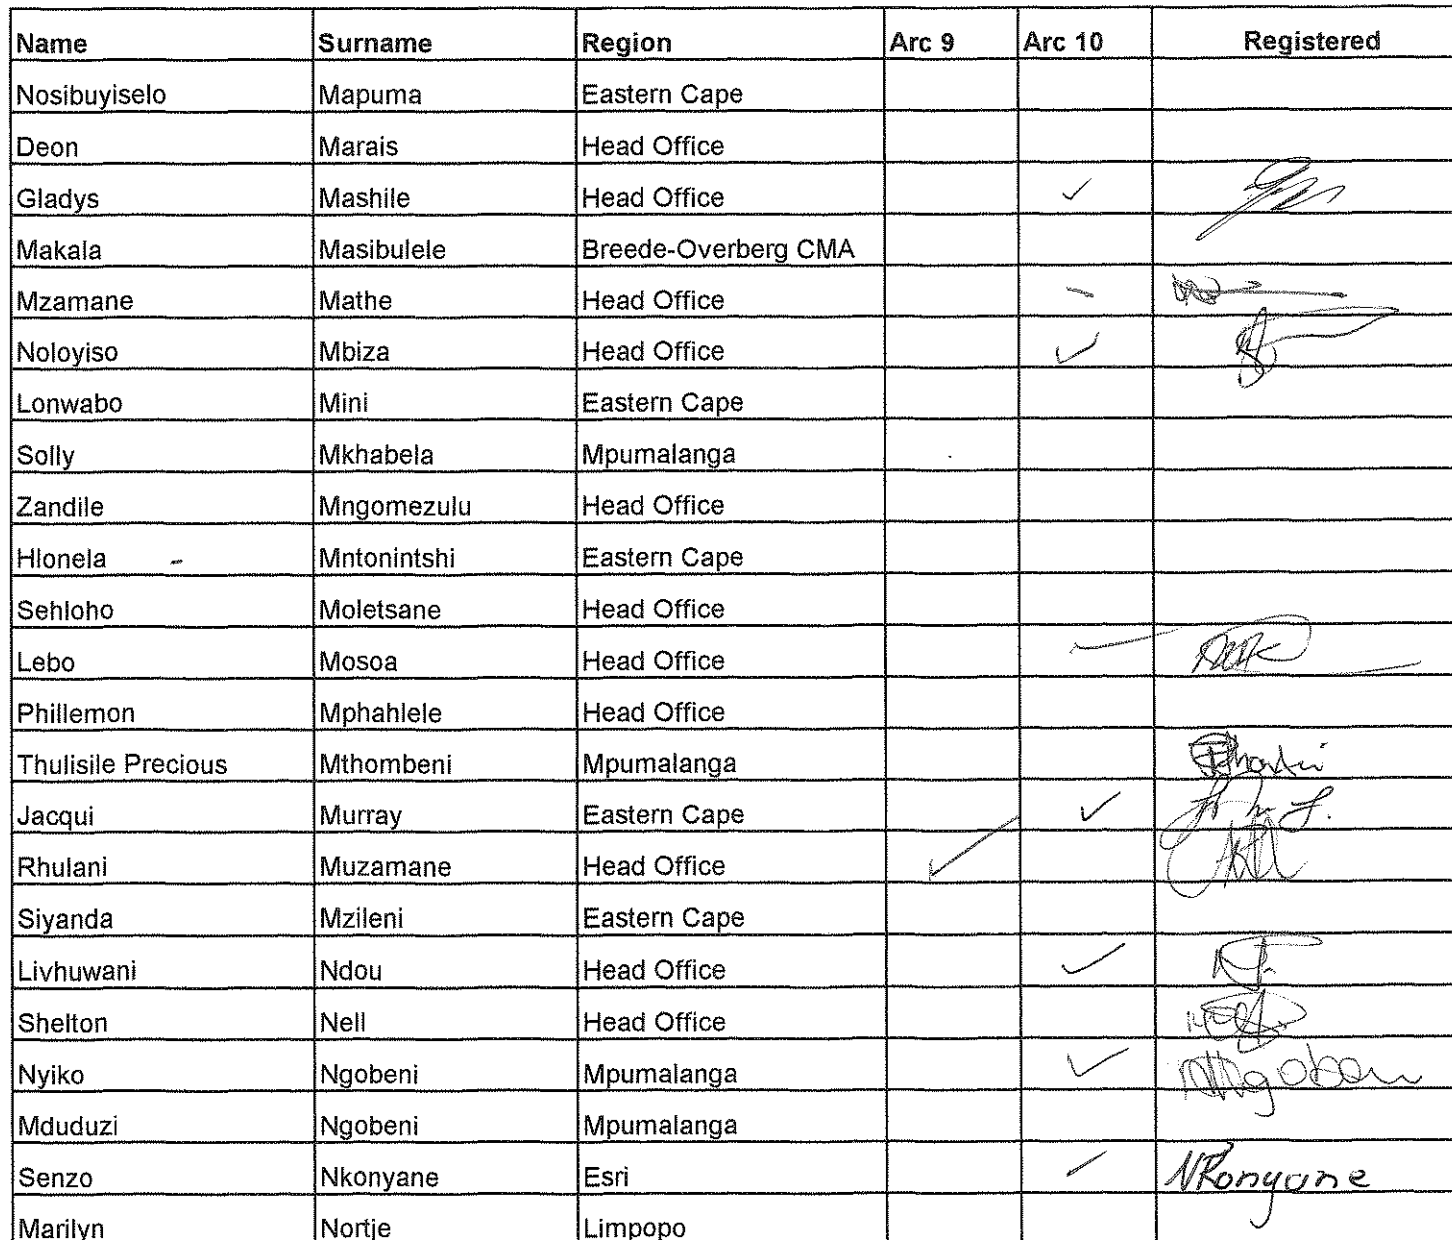 Name Surname Region Arc 9 Arc 10 Registered
Nosibuyiselo Mapuma Eastern Cape
Deon Marais Head Office
Gladys Mashile Head Office ✓
Makala Masibulele Breede-Overberg CMA
Mzamane Mathe Head Office
Noloyiso Mbiza Head Office ✓
Lonwabo Mini Eastern Cape
Solly Mkhabela Mpumalanga
Zandile Mngomezulu Head Office
Hlonela - Mntonintshi Eastern Cape
Sehloho Moletsane Head Office
Lebo Mosoa Head Office ✓
Phillemon Mphahlele Head Office
Thulisile Precious Mthombeni Mpumalanga
Jacqui Murray Eastern Cape ✓
Rhulani Muzamane Head Office ✓
Siyanda Mzileni Eastern Cape
Livhuwani Ndou Head Office ✓
Shelton Nell Head Office
Nyiko Ngobeni Mpumalanga ✓
Mduduzi Ngobeni Mpumalanga
Senzo Nkonyane Esri ✓ NKonyane
Marilyn Nortje Limpopo